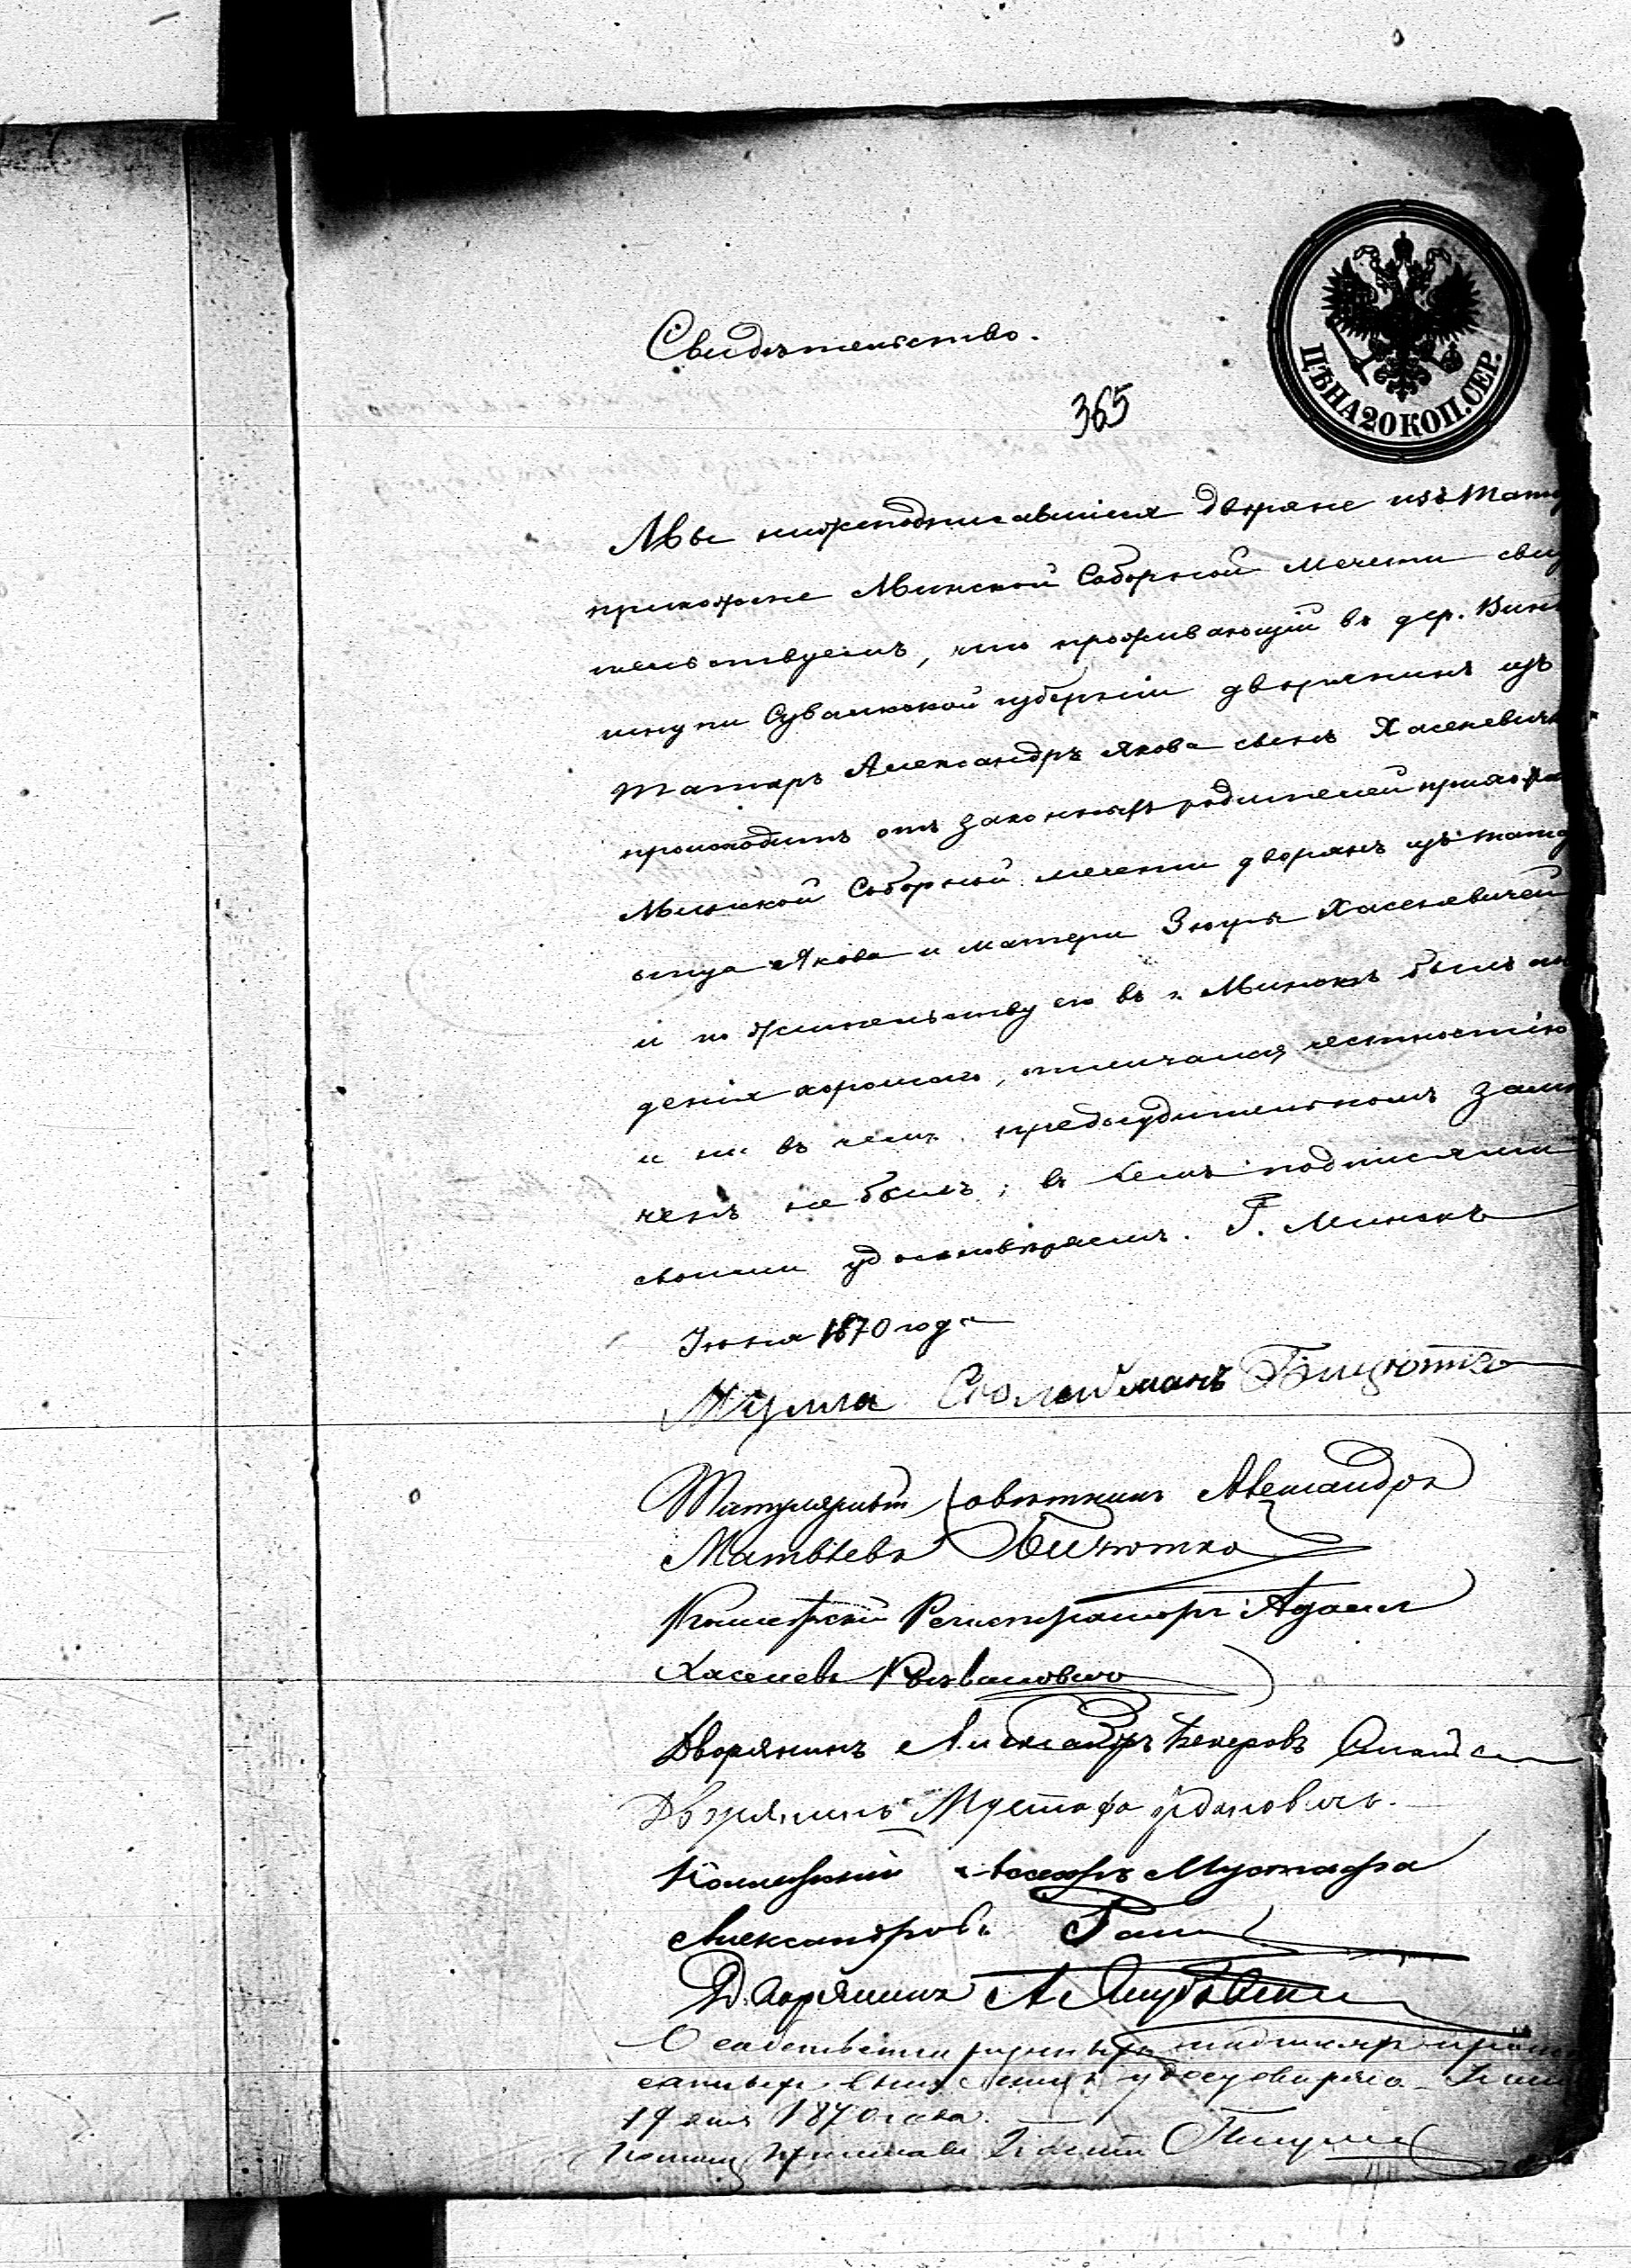 Свидѣтельство.
ЦѢНА 20 КОП. СЕР.
365
Мы нижеподписавшіеся дворяне изъ Тата
прихожане Минской Соборной мечети свид
тельствуемъ, что проживающій въ дер. Вин
шнупи Сувалкской губерніи дворянинъ изъ
Татаръ Александръ Якова сынъ Хасеневичъ
происходитъ отъ законныхъ родителей прихожа
Минской Соборной мечети дворянъ изъ тата
отца Якова и матери Зюри Хасеневичей
и по жительству его въ г. Минскѣ былъ
денія хорошаго, отличался честностію
и ни въ чемъ предосудительномъ замѣ
ченъ не былъ; въ чемъ подписями
своими удостовѣряемъ. Г. Минскъ
Іюня 1870 года
Мулла Сюлейманъ
Титулярный Совѣтникъ Александръ
Матвѣевъ
Коллежскій Регистраторъ Адамъ
Хасеневъ
Дворянинъ Александръ Бекеровъ
Дворянинъ Мустафа
Коллежскій Ассесоръ Мустафа
Александровъ
Дворянинъ А.
подписей
удостовѣряю
19 дня 1870 года.